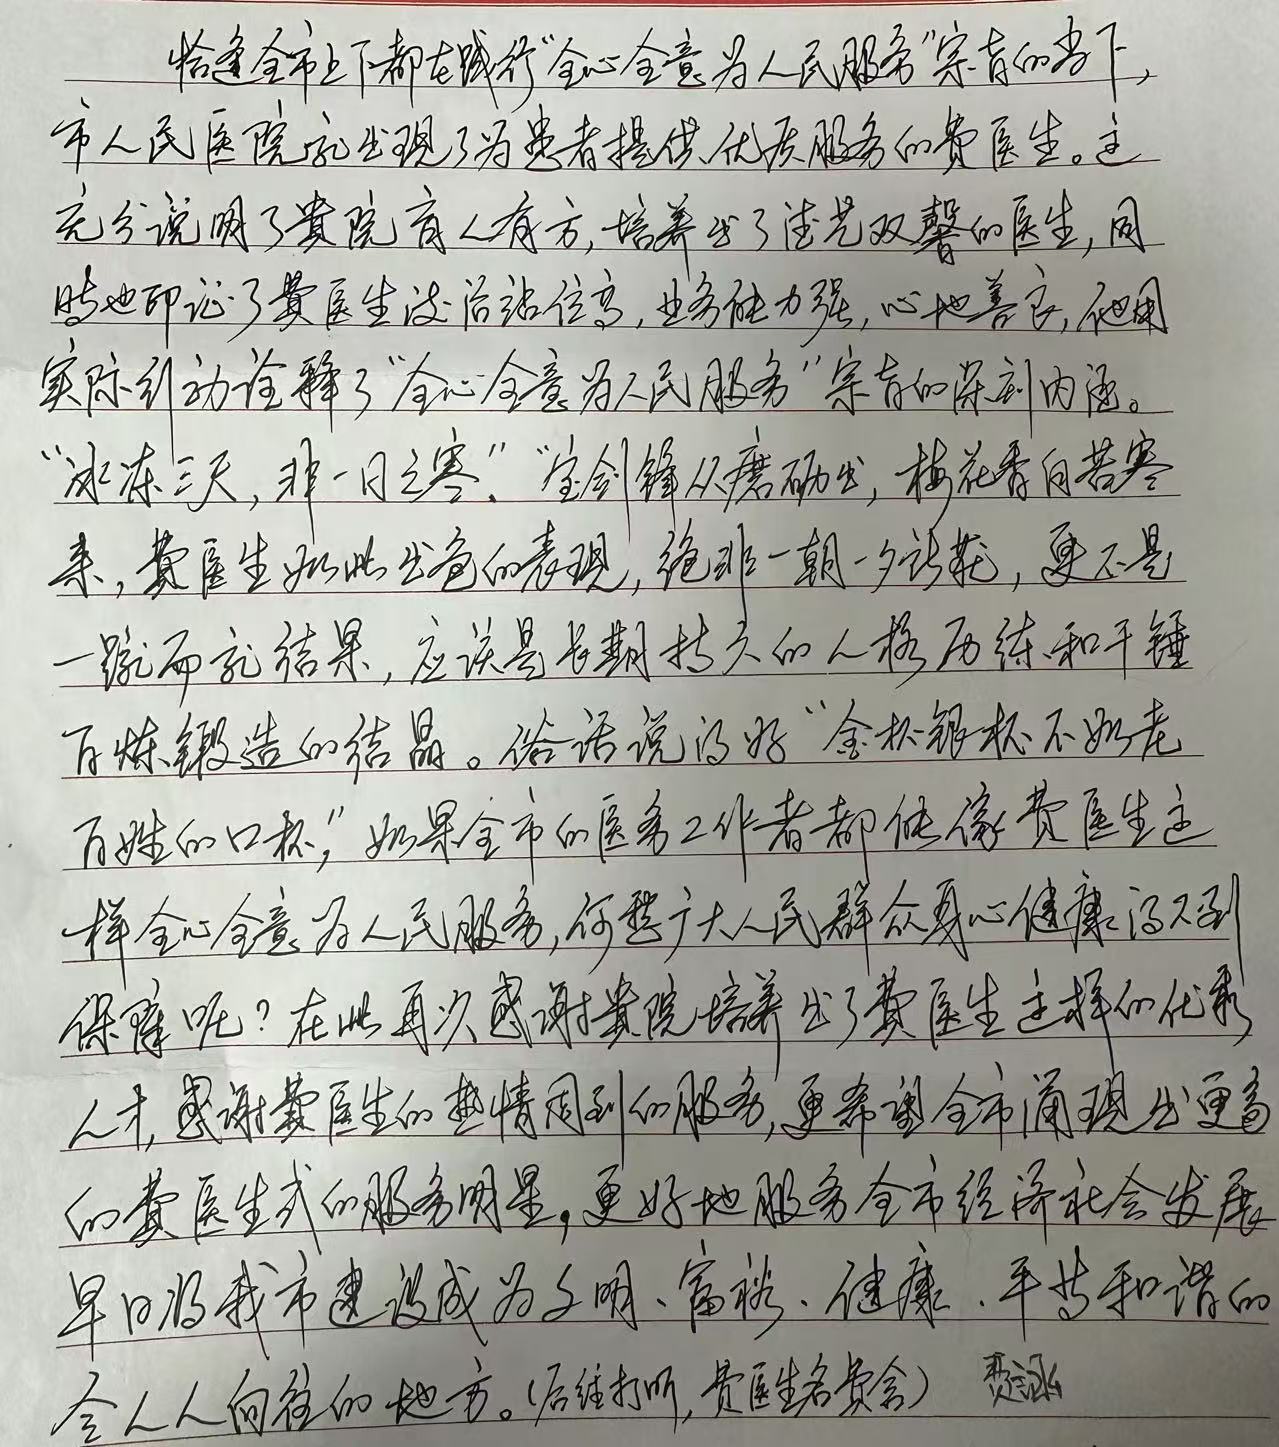 恰逢全市上下都在践行“全心全意为人民服务”宗旨的当下,
市人民医院就出现了为患者提供优质服务的费医生。这
充分说明了贵院育人有方,培养出了德艺双馨的医生,同
时也印证了费医生政治站位高,业务能力强,心地善良,他用
实际引动诠释了“全心全意为人民服务”宗旨的深刻内涵。
“冰冻三天,非一日之寒”、“宝剑锋从磨砺出,梅花香自苦寒
来,费医生如此出色的表现,绝非一朝一夕所能,更不是
一蹴而就结果,应该是长期持久的人格历练和千锤
百炼锻造的结晶。俗话说的好“金杯银杯不如老
百姓的口杯,”如果全市的医务工作者都能像费医生这
样全心全意为人民服务,何愁广大人民群众身心健康得不到
保障呢?在此再次感谢贵院培养出了费医生这样的优秀
人才,感谢费医生的热情周到的服务,更希望全市涌现出更多
的费医生式的服务明星,更好地服务全市经济社会发展
早日将我市建设成为文明、富裕、健康、平等和谐的
令人人向往的地方。(后经打听,费医生名费含)